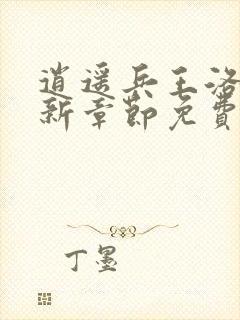 逍遥兵王洛
新章節免費
丁墨